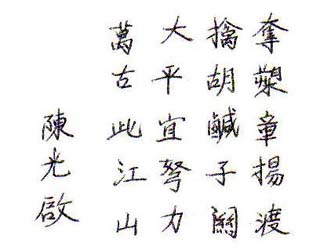 奪槊章揚渡
擒胡鹹子關
大平宜努力
萬古此江山
陳光啟